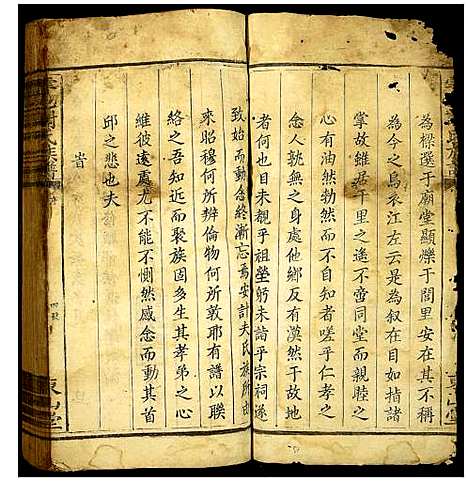 為樑選于廟堂顯爍于閭里安在其不稱
為今之烏衣江左云是為叙在目如指諸
掌故雖居千里之遙不啻同堂而親睦之
心有油然勃然而不自知者嗟乎仁孝之
念人孰無之身處他鄉反有漠然于衆
者何也目未覩乎祖塋躬未詣乎宗祠遂
致始而動念終漸忘焉安計夫氏族所由
來昭穆何所辨倫物何所敦耶有譜以聯
絡之吾知近而聚族固多生其孝弟之心
維彼遠處尤不能不惻然感念而動其首
邱之悲也夫
氏族譜
東山堂